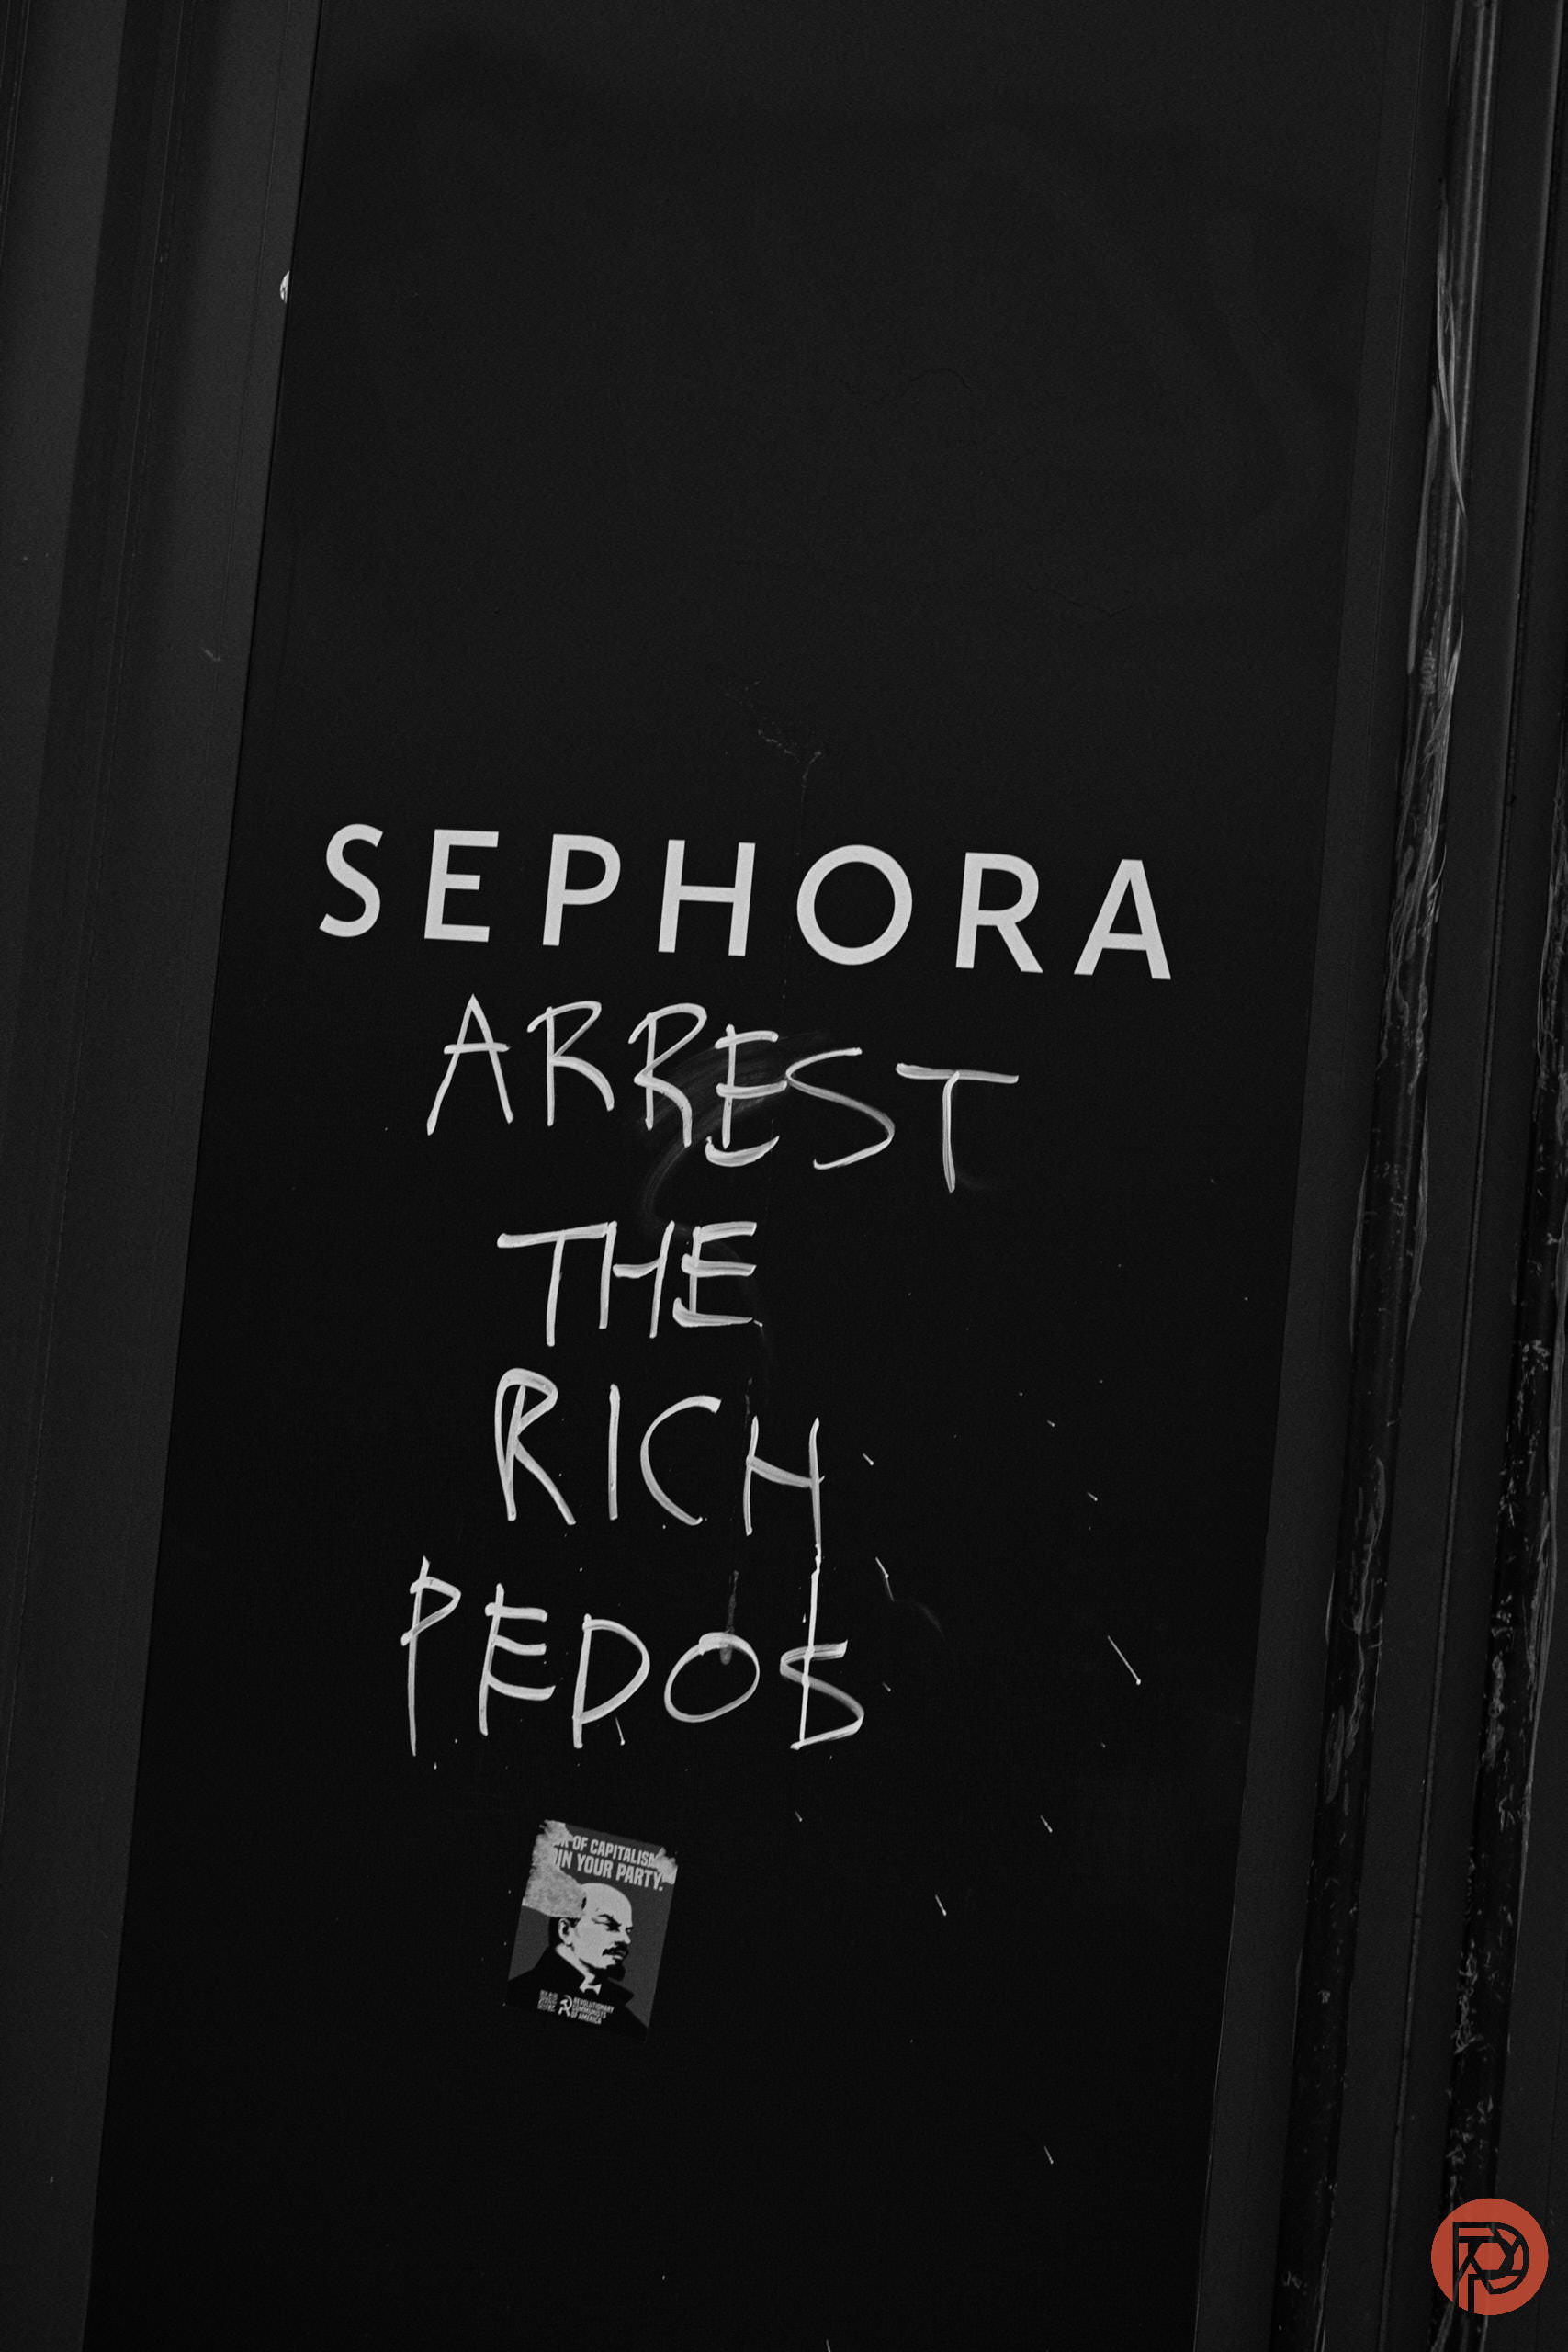 SEPHORA
ARREST
THE
RICH
PEDOS
OF CAPITALISM
IN YOUR PARTY.
REVOLUTIONARY
COMMUNISTS
OF AMERICA